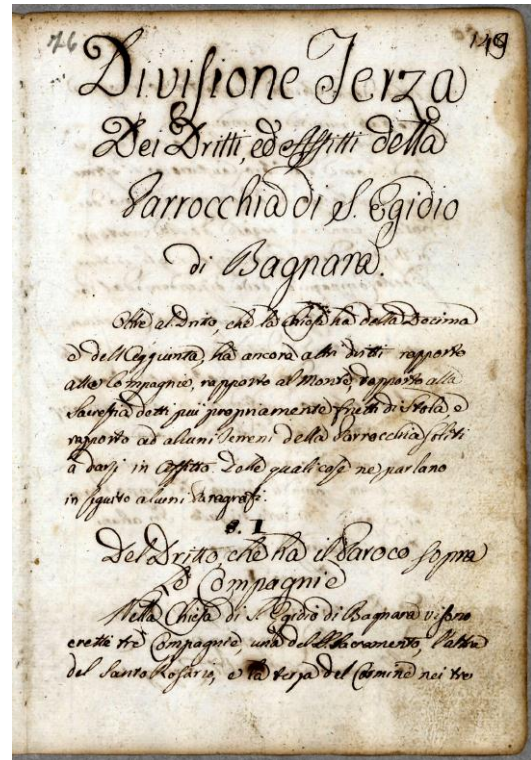 76 149
Divisione Terza
Dei Dritti, ed Affitti della
Parrocchia di S. Egidio
di Bagnara.
Oltre al Dritto, che la Chiesa ha della Decima
e dell'Aggiunta, ha ancora altri dritti rapporto
alle Compagnie, rapporto al Monte, rapporto alla
Sacrestia detti più propriamente frutti di Stola, e
rapporto ad alcuni Terreni della Parrocchia soliti
a darsi in Affitto. Delle quali cose ne parlano
in seguito alcuni Paragrafi.
§. I
Del Dritto che ha il Paroco sopra
le Compagnie
Nella Chiesa di S. Egidio di Bagnara vi sono
erette trè Compagnie, una del SS. Sacramento, l'altra
del Santo Rosario, e la terza del Carmine nei tre